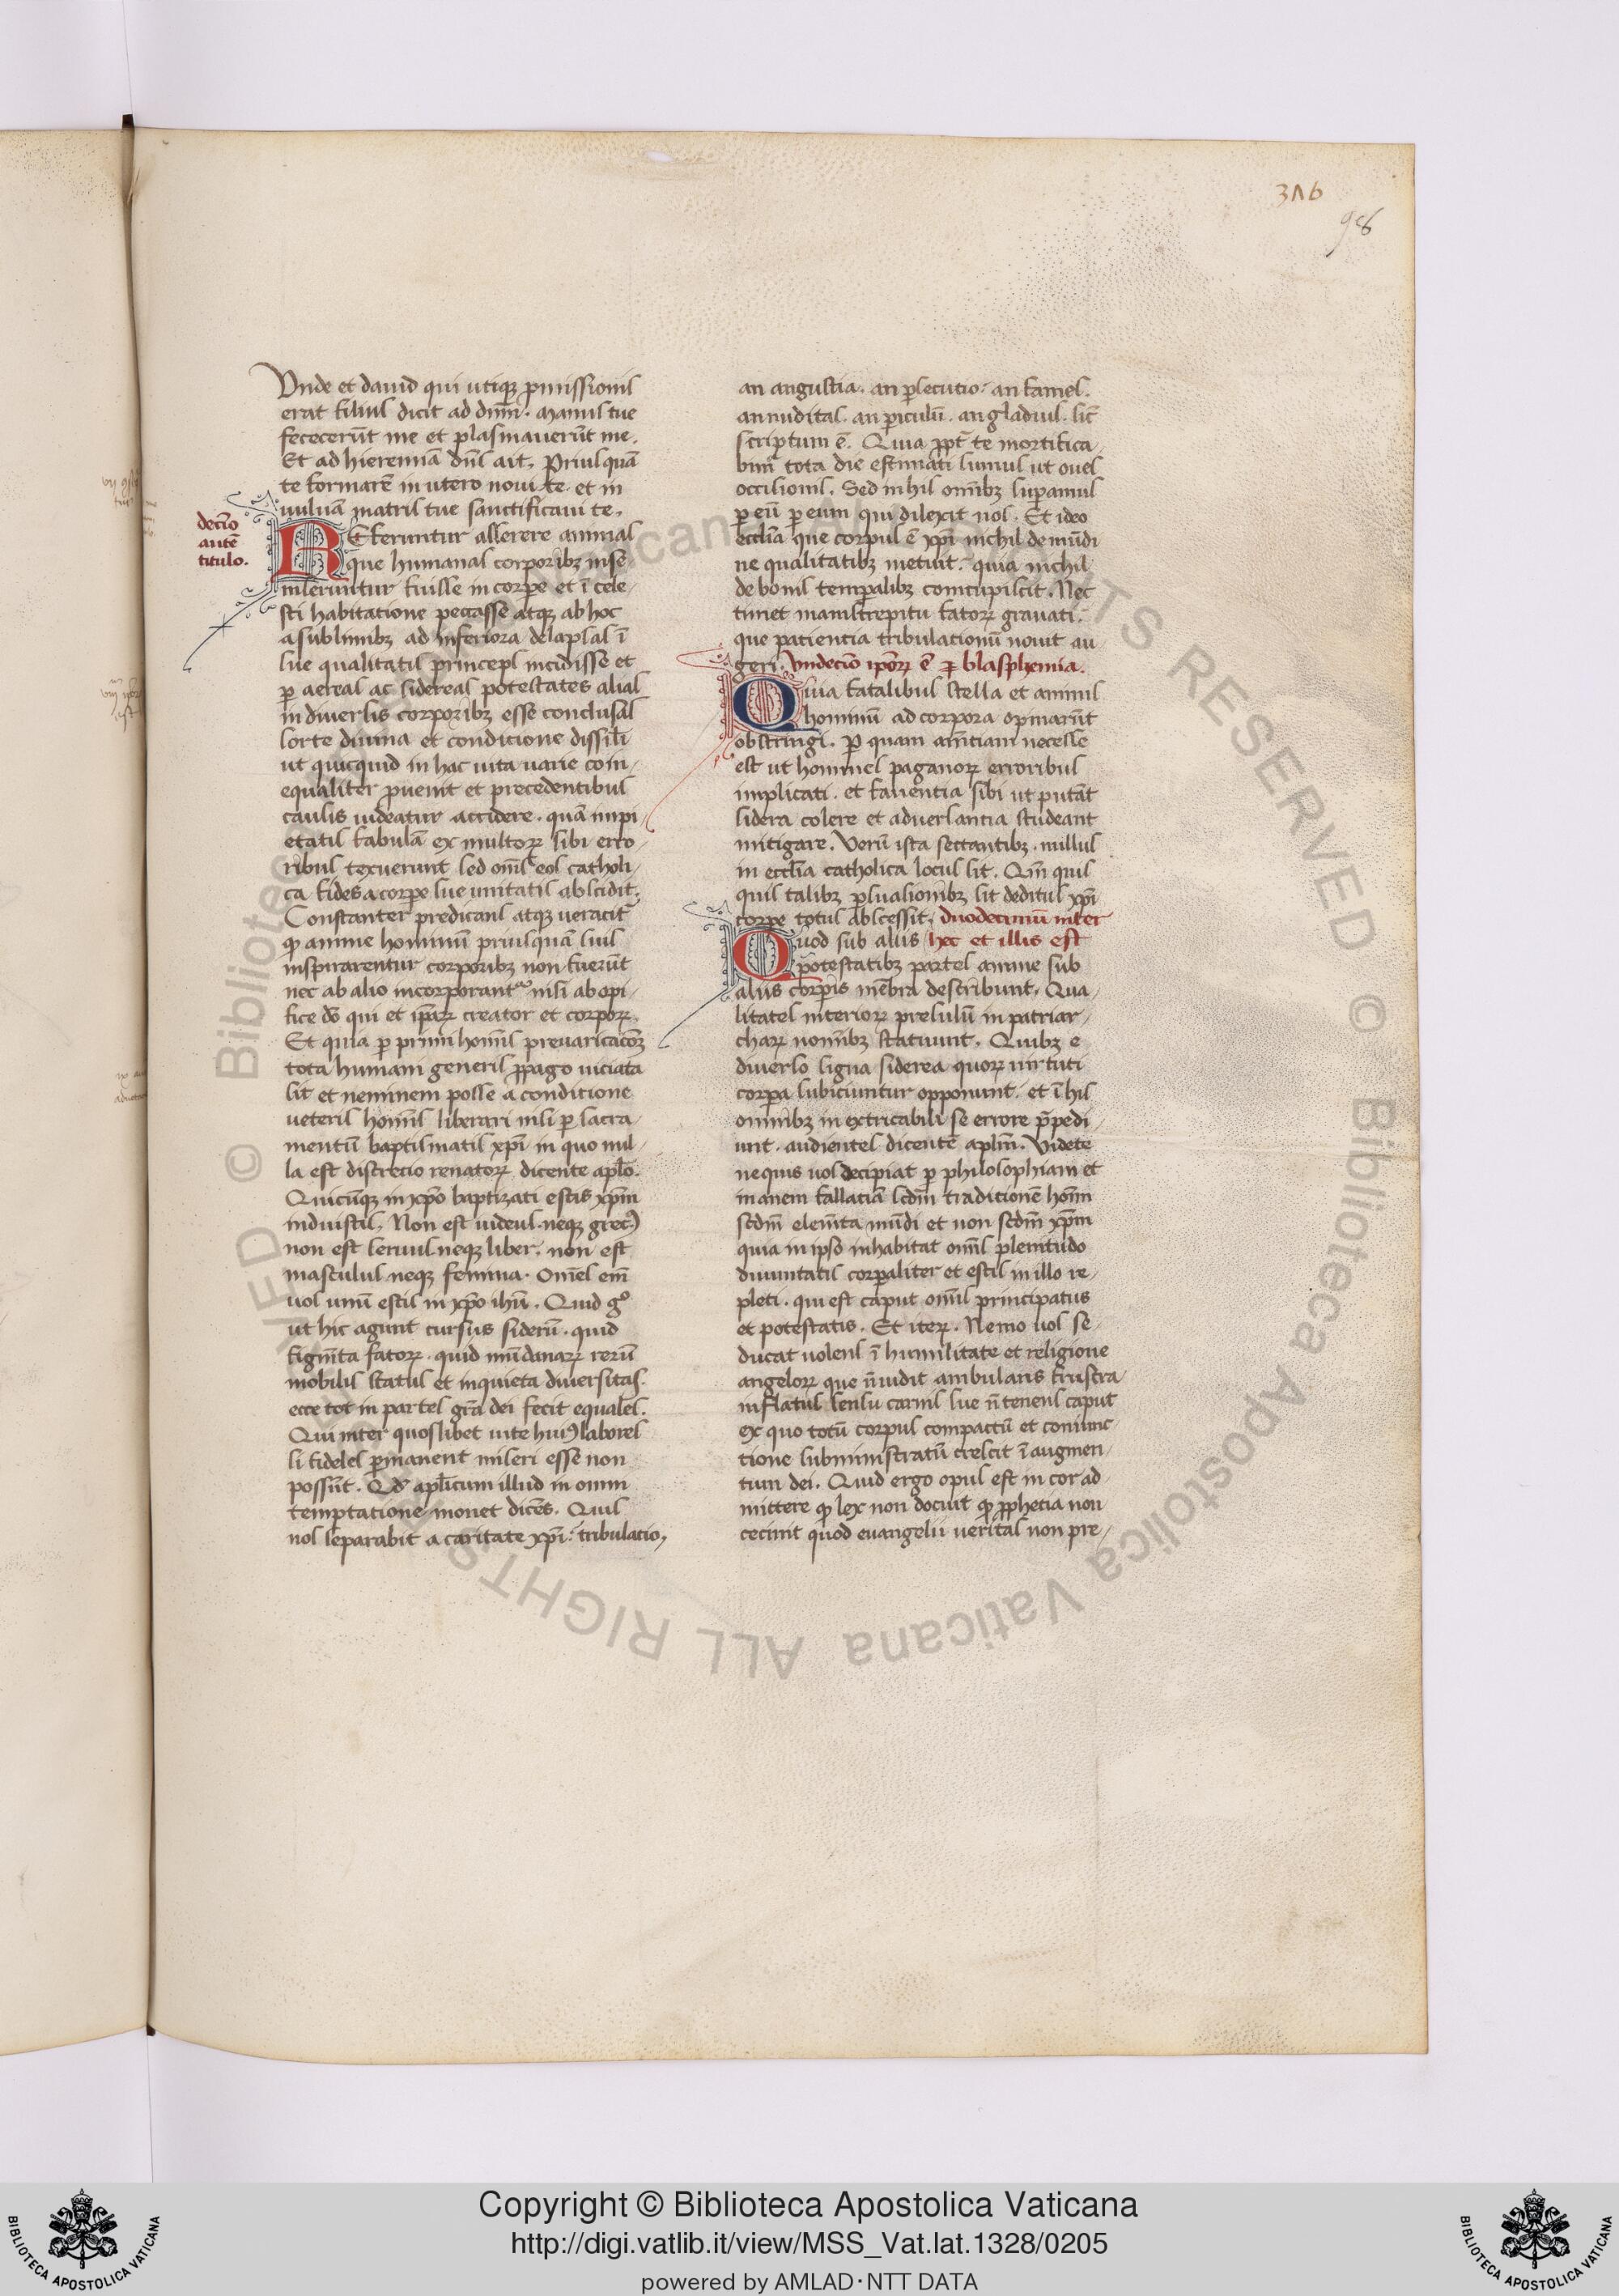 316
98
Vnde et dauid qui utiqꝫ ꝓmissionis
erat filius dicit ad dñm. Manus tue
fececerūt me et plasmauerūt me.
Et ad hieremiā dñs ait. Priusquā
te formarē in utero noui te. et in
uuluā matris tue sanctificaui te.
decīo
autē
titulo.
REferuntur asserere animas
que humanas corporibꝫ inse
inseruntur fuisse in corpe et ī cele-
sti habitatione peccasse atqꝫ ab hoc
a sublimibꝫ ad inferiora delapsas ī
sue qualitatis princeps incidisse et
ꝑ aereas ac sidereas potestates alias
in diuersis corporibꝫ esse conclusas
sorte diuina et condicione dissili
ut quicquid in hac uita uarie coin-
equaliter ꝓuenit et precedentibus
causis uideatur accidere. quā impi-
etatis fabulā ex multoꝝ sibi erro-
ribus texuerunt sed om̄s eos catholi-
ca fides a corpe sue unitatis abscidit.
Constanter predicans atqꝫ ueracit̄
ꝙ anime hominū priusquā suis
inspirarentur corporibꝫ non fuerūt
nec ab alio incorporant᷑ nisi ab opi-
fice dō qui et ip̄aꝝ creator et corpoꝝ.
Et quia ꝑ primi homīs preuaricacōꝫ
tota humani generis ꝓpago uiciata
sit et neminem posse a conditione
ueteris homīs liberari nisi ꝑ sacra-
mentū baptismatis xp̄i in quo nul-
la est discrecio renatoꝝ dicente aplo.
Quicūqꝫ in xp̄o baptizati estis xp̄m
induistis. Non est iudeus neqꝫ grecꝰ
non est seruus neqꝫ liber. non est
masculus neqꝫ femina. Om̄es em̄
uos unū estis in xp̄o ihū. Quid gͦ
ut hic agunt cursus siderū. quid
figmīta fatoꝝ. quid mūdanaꝝ rerū
mobilis status et inquieta diuersitas.
ecce tot in partes gr̄a dei fecit equales.
Qui inter quoslibet uite huiꝰ labores
si fideles ꝑmanent miseri esse non
possūt. Qd̓ aplicum illud in omni
temptatione monet dicēs. Quis
nos separabit a caritate xp̄i: tribulatio,
an angustia. an ꝑsecutio. an fames.
an nuditas. an ꝑiculū. an gladius. sic̄
scriptum ē. Quia ꝓpt̄ te mortifica-
bim̄ tota die estimati sumus ut oues
occisionis. Sed in his om̄ibꝫ suꝑamus
ꝑ eū ꝑ eum qui dilexit nos. Et ideo
eccl̄ia que corpus ē xp̄i nichil de mūdi
ne qualitatibꝫ metuit. quia nichil
de bonis temꝑalibꝫ concupiscit. Nec
timet inani strepitu fatoꝝ grauati.
que patientia tribulationū nouit au
geri. Vndecīo ip̄oꝝ ē ꝓ blasphemia.
Quia fatalibus stella et animis
hominū ad corpora opinarūt
obstringi. Ꝑ quam am̄tiam necesse
est ut homines paganoꝝ erroribus
implicati. et fauentia sibi ut putāt
sidera colere et aduersantia studeant
mitigare. Verū ista sectantibꝫ. nullus
in eccl̄ia catholica locus sit. Qm̄ quis
quis talibꝫ ꝑsuasionibꝫ sit deditus xp̄i
corpe totus abscessit. duodecimū inter
Quod sub aliis hec et illis est
potestatibꝫ partes anime sub
aliis corpis mēbra describunt. Qua-
litates interioꝝ presulū in patriar-
chaꝝ nomībꝫ statuunt. Quibꝫ e
diuerso signa siderea quoꝝ uirtuti
corpa subiciuntur opponunt. et ī his
omnibꝫ in extricabili se errore p̄pedi-
unt. audientes dicentē aplm̄. Videte
nequis uos decipiat ꝑ philosophiam et
inanem fallaciā scdm̄ traditionē homī
scdm̄ elemīta mūdi et non scdm̄ xp̄m
quia in ipso inhabitat om̄is plenitudo
diuinitatis corꝑaliter et estis in illo re-
pleti. qui est caput om̄is principatus
et potestatis. Et iteꝝ. Nemo uos se-
ducat uolens ī humilitate et religione
angeloꝝ que n̄ uidit ambulans frustra
inflatus sensu carnis sue n̄ tenens caput
ex quo totū corpus compactū et coniunc-
tione subministratū crescit ī augmen-
tum dei. Quid ergo opus est in cor ad-
mittere ꝙ lex non docuit ꝙ ꝓphetia non
cecinit quod euangelii ueritas non pre-
Copyright © Biblioteca Apostolica Vaticana
http://digi.vatlib.it/view/MSS_Vat.lat.1328/0205
powered by AMLAD·NTT DATA
BIBLIOTECA APOSTOLICA VATICANA
BIBLIOTECA APOSTOLICA VATICANA